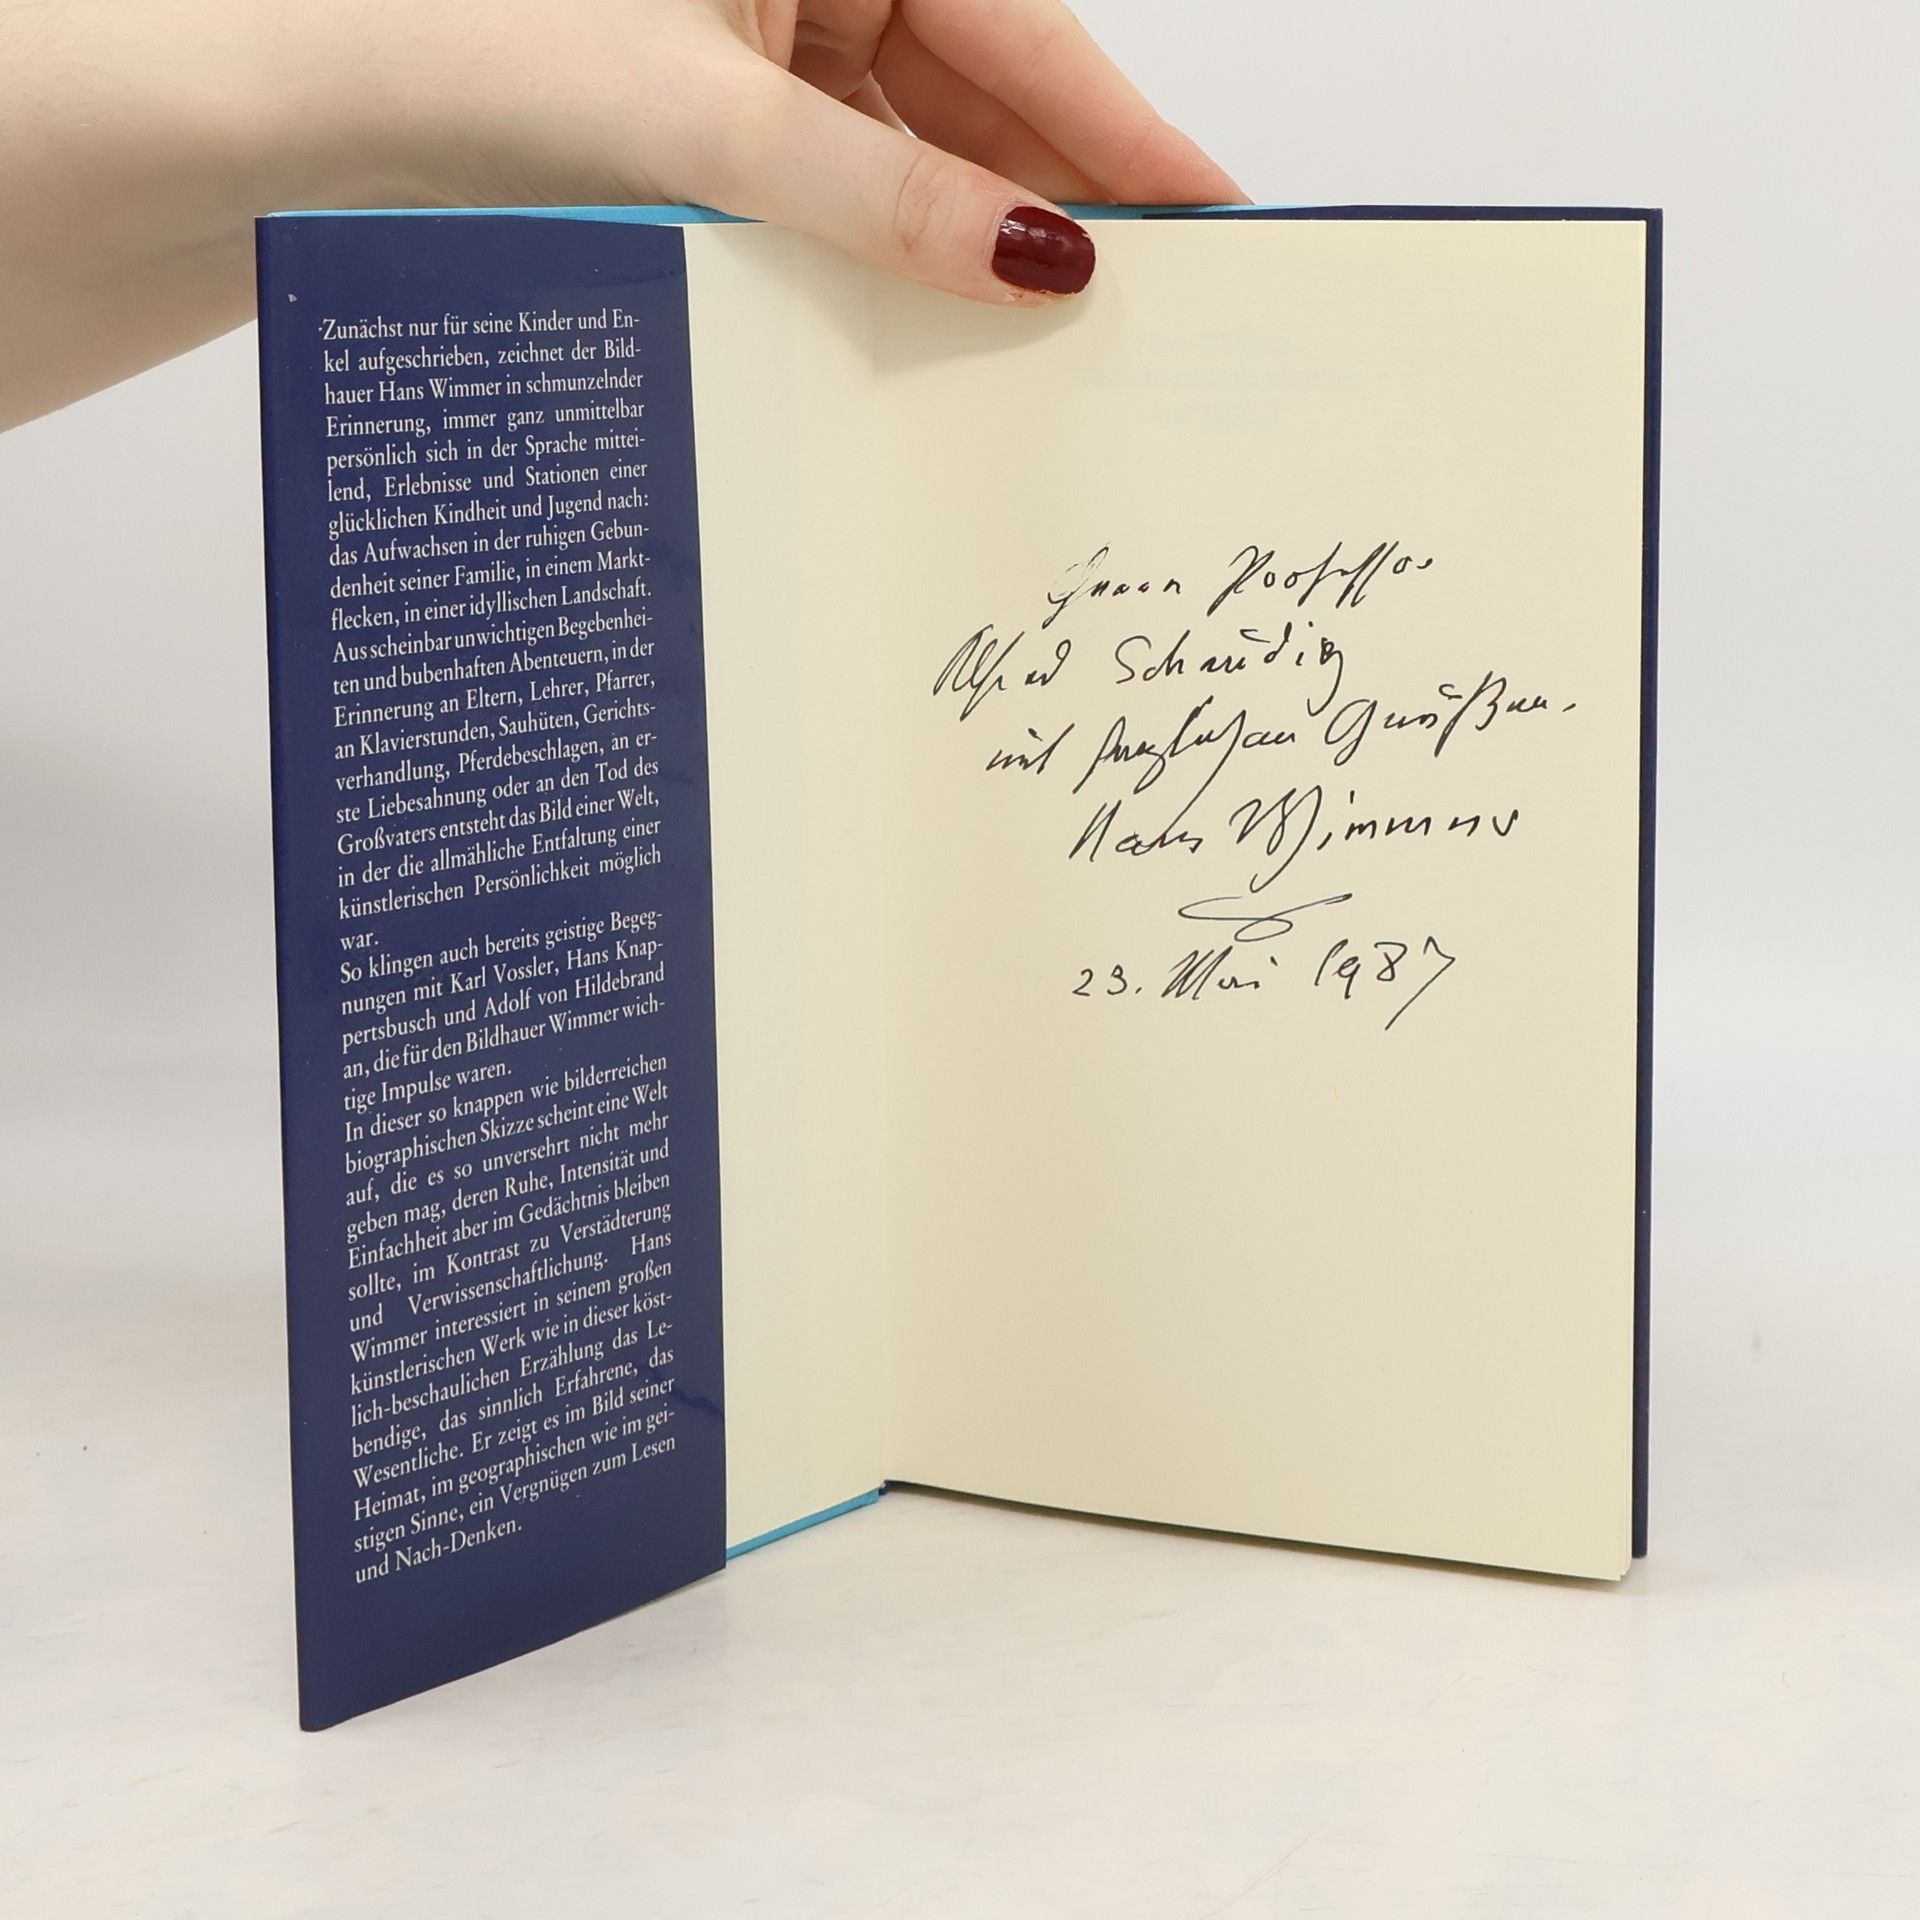 Zunächst nur für seine Kinder und En-
kel aufgeschrieben, zeichnet der Bild-
hauer Hans Wimmer in schmunzelnder
Erinnerung, immer ganz unmittelbar
persönlich sich in der Sprache mittei-
lend, Erlebnisse und Stationen einer
glücklichen Kindheit und Jugend nach:
das Aufwachsen in der ruhigen Gebun-
denheit seiner Familie, in einem Markt-
flecken, in einer idyllischen Landschaft.
Aus scheinbar unwichtigen Begebenhei-
ten und bubenhaften Abenteuern, in der
Erinnerung an Eltern, Lehrer, Pfarrer,
an Klavierstunden, Sauhüten, Gerichts-
verhandlung, Pferdebeschlagen, an er-
ste Liebesahnung oder an den Tod des
Großvaters entsteht das Bild einer Welt,
in der die allmähliche Entfaltung einer
künstlerischen Persönlichkeit möglich
war.
So klingen auch bereits geistige Begeg-
nungen mit Karl Vossler, Hans Knap-
pertsbusch und Adolf von Hildebrand
an, die für den Bildhauer Wimmer wich-
tige Impulse waren.
In dieser so knappen wie bilderreichen
biographischen Skizze scheint eine Welt
auf, die es so unversehrt nicht mehr
geben mag, deren Ruhe, Intensität und
Einfachheit aber im Gedächtnis bleiben
sollte, im Kontrast zu Verstädterung
und Verwissenschaftlichung. Hans
Wimmer interessiert in seinem großen
künstlerischen Werk wie in dieser köst-
lich-beschaulichen Erzählung das Le-
bendige, das sinnlich Erfahrene, das
Wesentliche. Er zeigt es im Bild seiner
Heimat, im geographischen wie im gei-
stigen Sinne, ein Vergnügen zum Lesen
und Nach-Denken.
Herrn Professor
Alfred Schaudig
mit herzlichen Grüßen.
Hans Wimmer
23. Mai 1987